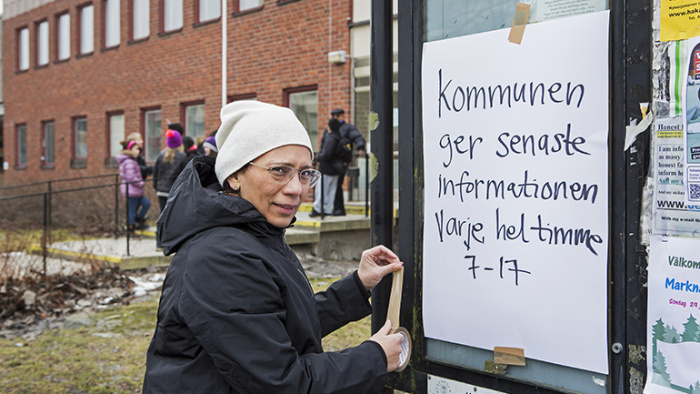 Kommunen
ger senaste
informationen
Varje heltimme
7-17
Välkom
Markna
Söndag 29